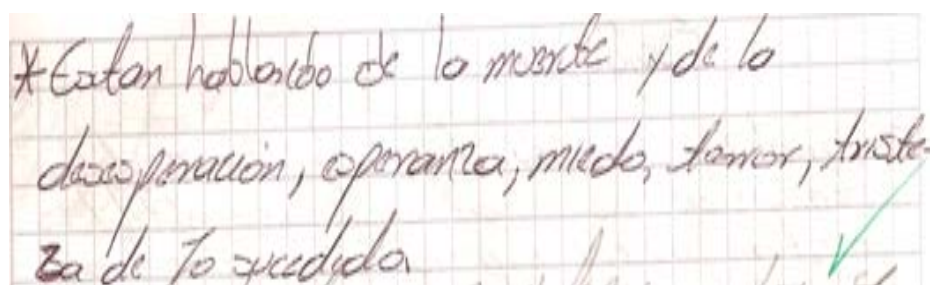 * Estan hablando de la muerte y de la
desesperación, esperanza, miedo, temor, triste-
za de lo sucedido.